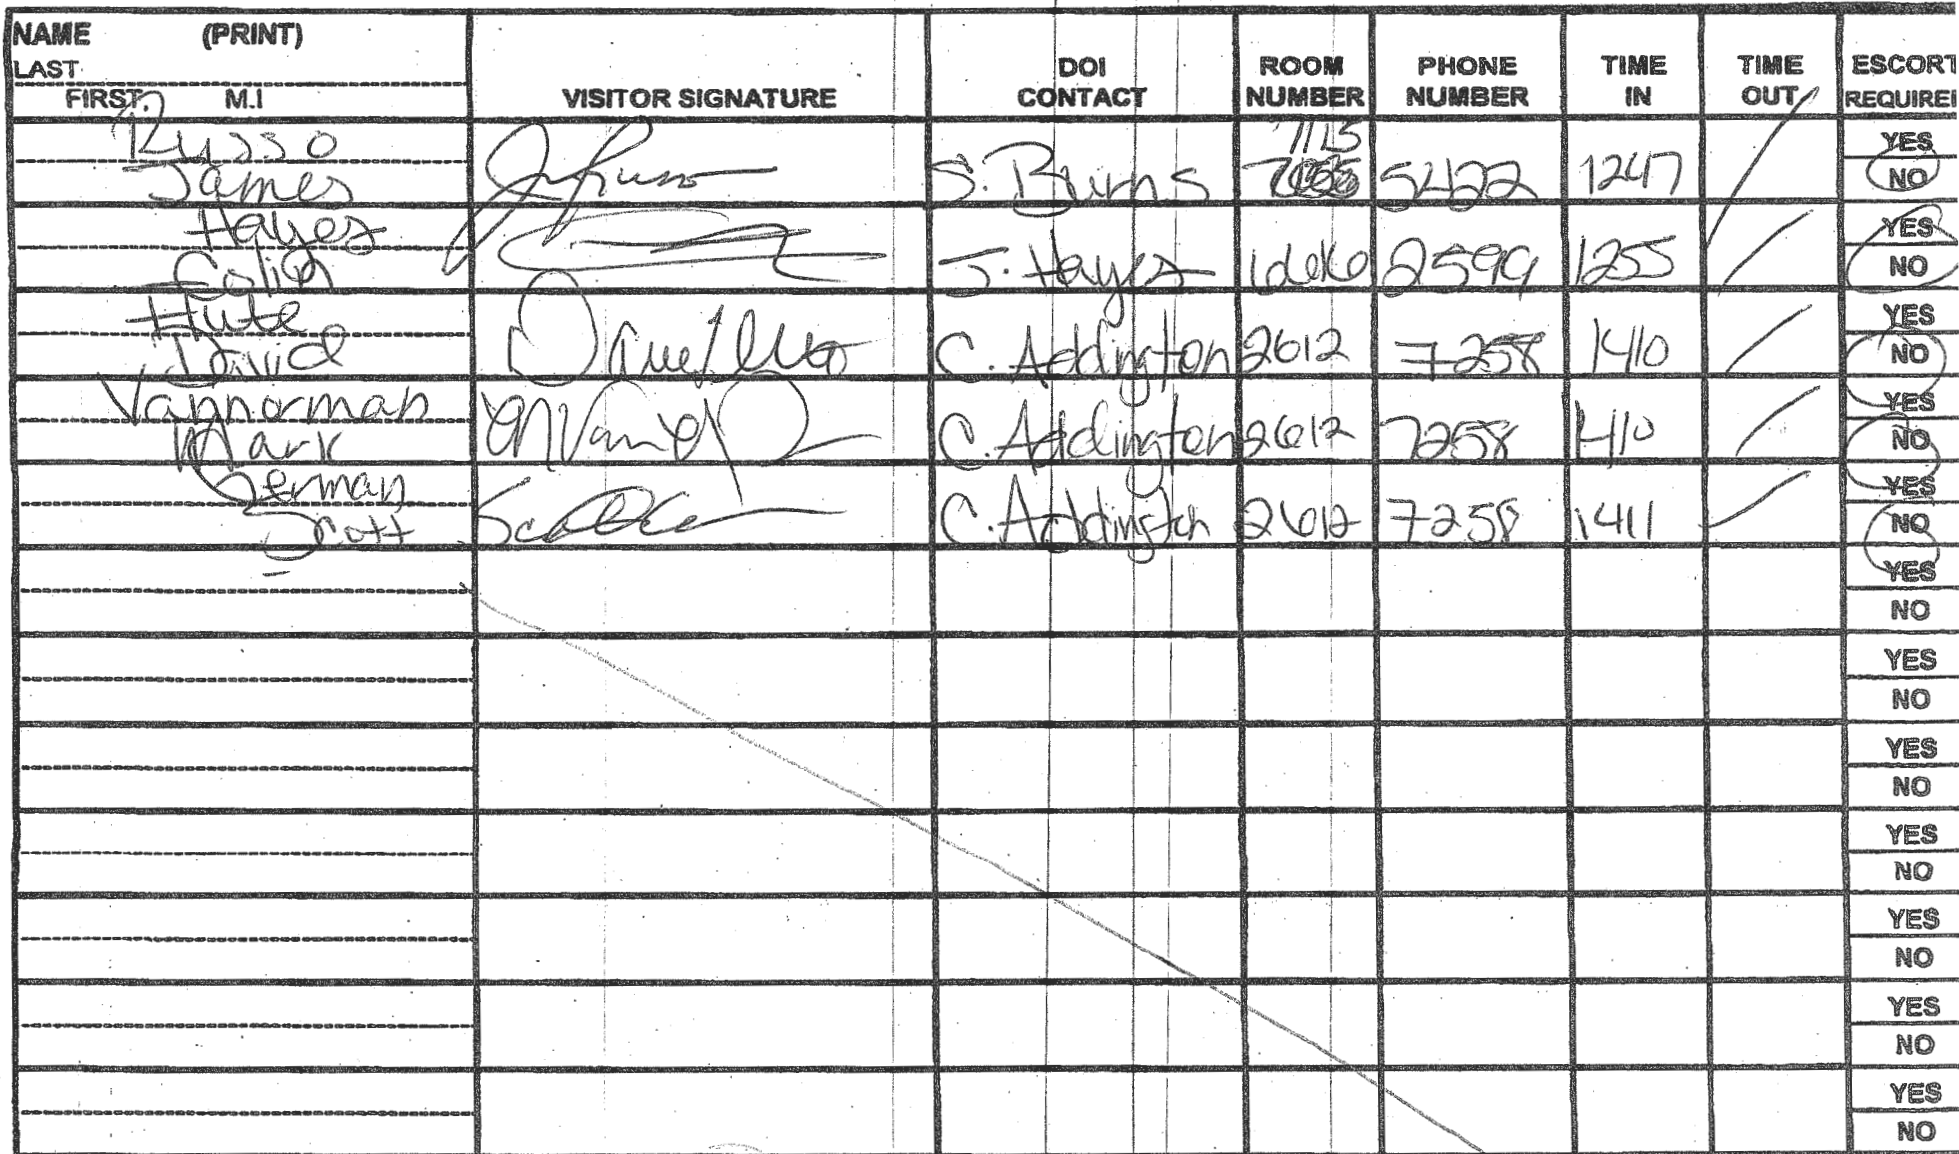 NAME (PRINT)
LAST
FIRST, M.I
VISITOR SIGNATURE
DOI CONTACT
ROOM NUMBER
PHONE NUMBER
TIME IN
TIME OUT
ESCORT REQUIREI
Russo
James
S. Burns 7115 5422 1247
YES
NO
Hayes
Colin
J. Hayes 2599 1255
YES
NO
Hute
David
C. Addington 2612 7258 1410
YES
NO
Vannorman
Mark
C. Addington 2612 7258 1410
YES
NO
German
Scott
C. Addington 2612 7258 1411
YES
NO
YES
NO
YES
NO
YES
NO
YES
NO
YES
NO
YES
NO
YES
NO